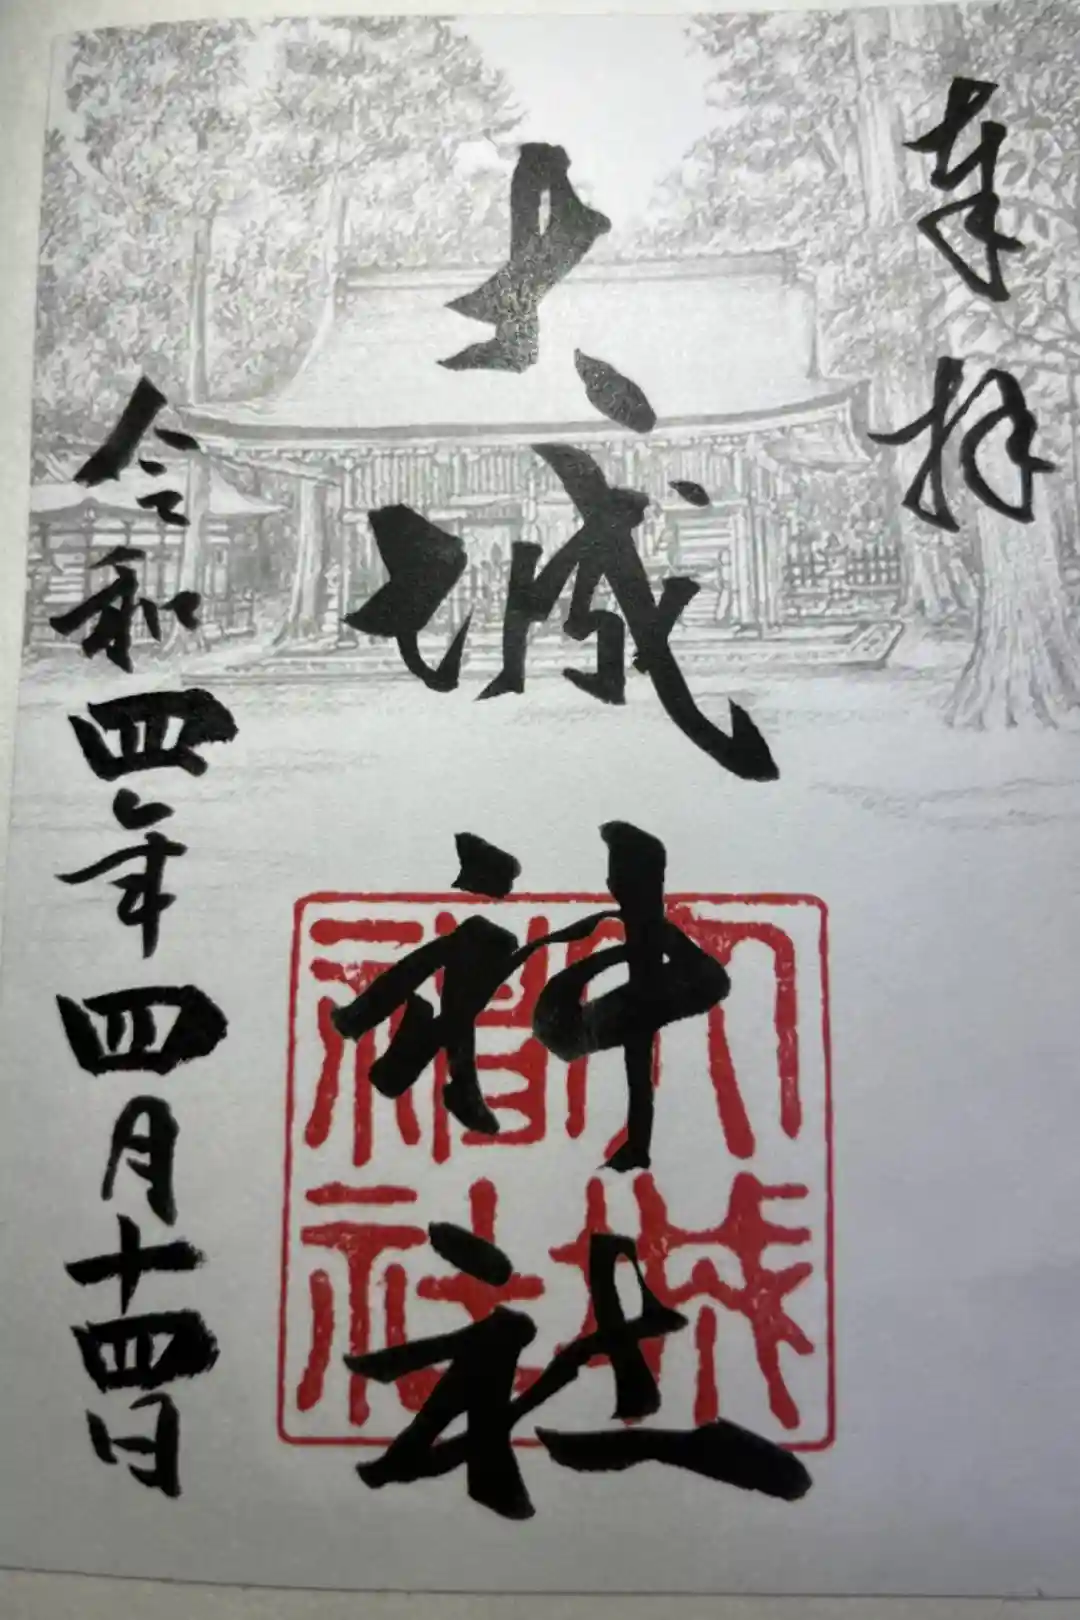 奉拝
大城神社
大城
神社
令和四年四月十四日